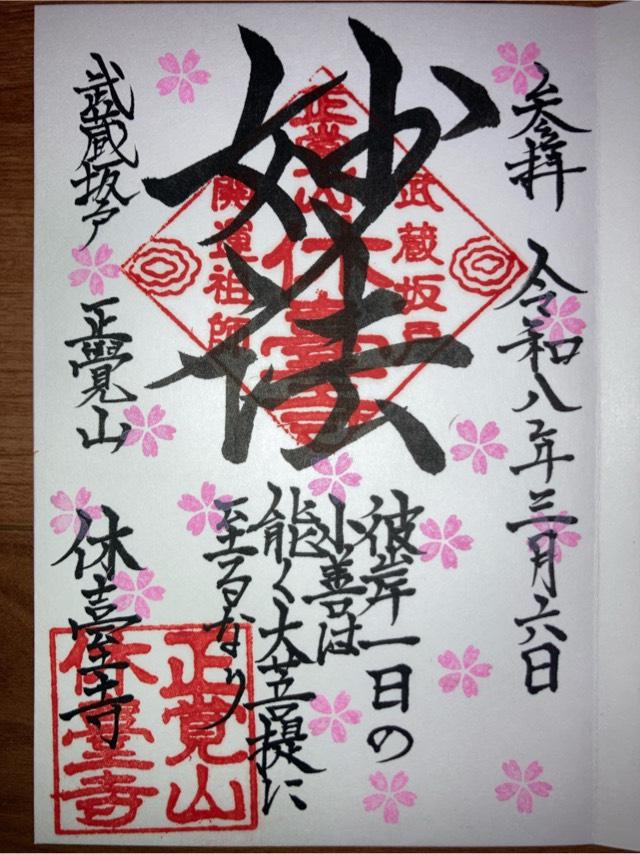 参拝 令和八年三月六日
妙法
彼岸一日の
小善は
能く大菩提に
至るなり
武蔵坂戸 正覺山
休臺寺
武蔵坂戸
休臺寺
開運祖師
正覚山
休臺寺